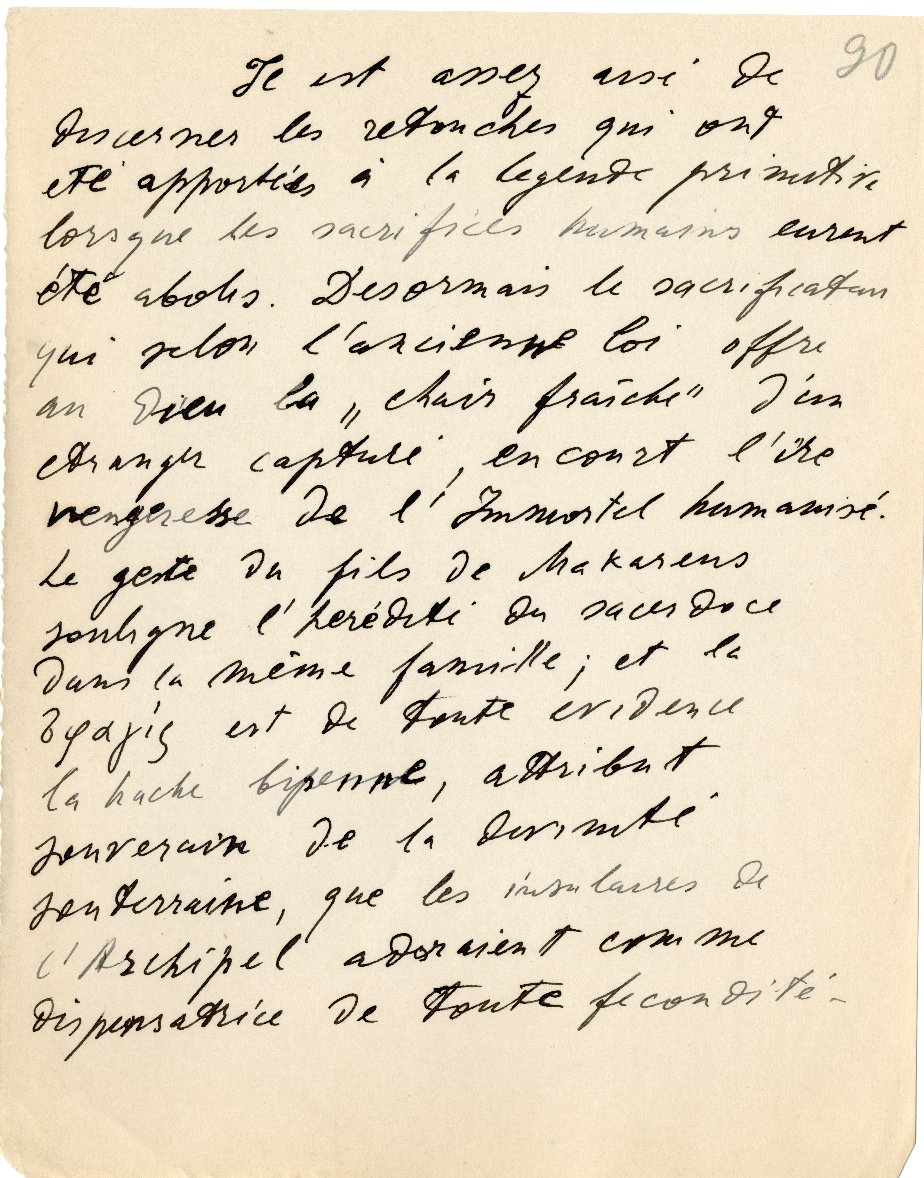 90
Il est assez aisé de
discerner les retouches qui ont
été apportées à la legende primitive
lorsque les sacrifices humains eurent
été abolis. Desormais le sacrificateur
qui selon l'ancienne loi offre
au Dieu la „chair fraîche" d'un
etranger capturé, encourt l'ire
vengeresse de l'Immortel humanisé.
Le geste du fils de Makareus
souligne l'herédité du sacerdoce
dans la même famille; et la
σφαγίς est de toute evidence
la hache bipenne, attribut
souverain de la divinité
souterraine, que les insulaires de
l'Archipel adoraient comme
dispensatrice de toute fecondité -